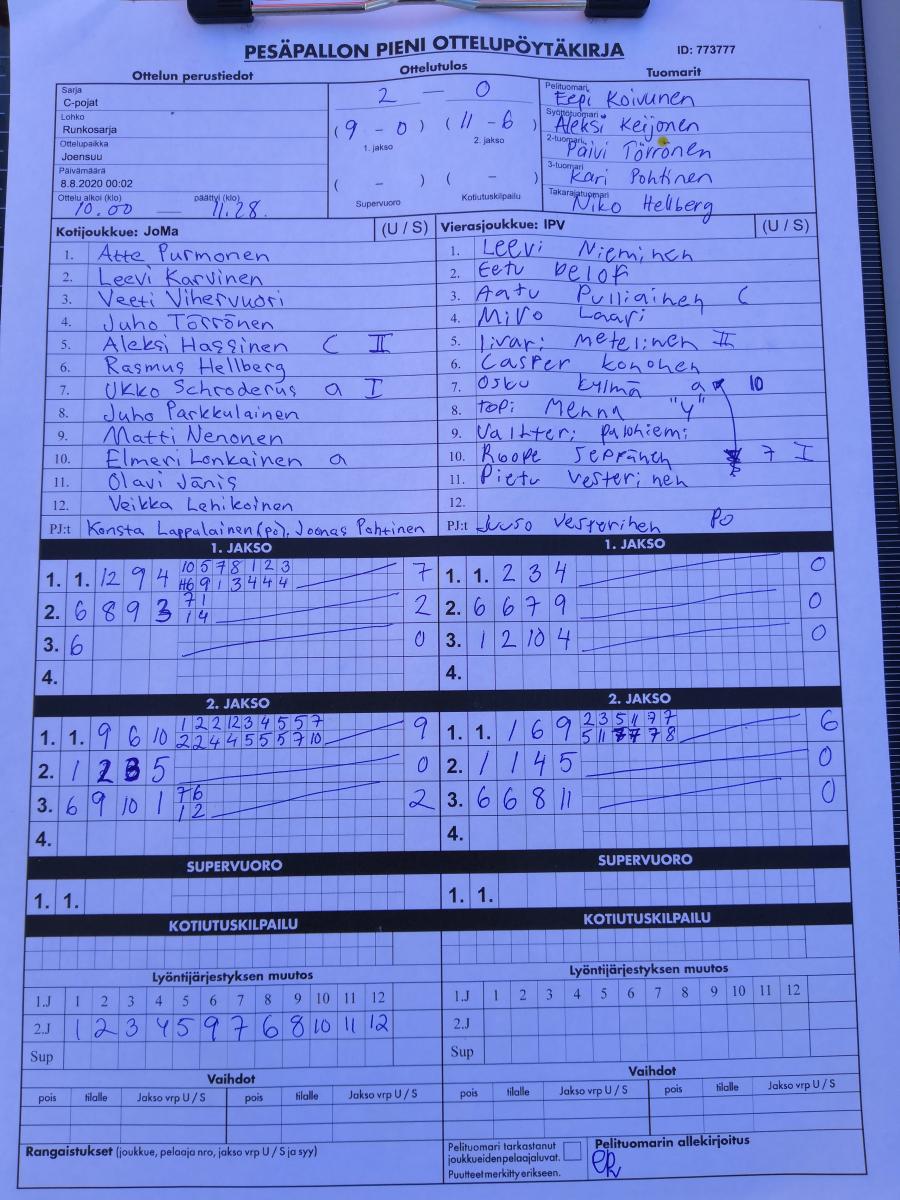 PESÄPALLON PIENI OTTELUPÖYTÄKIRJA ID: 773777
Ottelun perustiedot
Sarja
C-pojat
Lohko
Runkosarja
Ottelupaikka
Joensuu
Päivämäärä
8.8.2020 00:02
Ottelu alkoi (klo) päättyi (klo)
10.00 — 11.28.
Ottelutulos
2 — 0
(9 - 0) (11 - 6)
1. jakso 2. jakso
( - ) ( - )
Supervuoro Kotiutuskilpailu
Tuomarit
Pelituomari
Eepi Koivunen
Syöttötuomari
Aleksi Keijonen
2-tuomari
Päivi Törrönen
3-tuomari
Kari Pohtinen
Takarajatuomari
Niko Hellberg
Kotijoukkue: JoMa (U / S)
1. Atte Purmonen
2. Leevi Karvinen
3. Veeti Vihervuori
4. Juho Törrönen
5. Aleksi Hassinen C II
6. Rasmus Hellberg
7. Ukko Schroderus a I
8. Juho Parkkulainen
9. Matti Nenonen
10. Elmeri Lonkainen a
11. Olavi Jänis
12. Veikka Lehikoinen
PJ:t Konsta Lappalainen (po), Joonas Pahtinen
Vierasjoukkue: IPV (U / S)
1. Leevi Nieminen
2. Eetu Belof
3. Aatu Pulliainen C
4. Miro Laari
5. Iivari Metelinen II
6. Casper Kononen
7. Osku Kylmä a 10
8. Topi Menna "y"
9. Valtteri Palohiemi
10. Roope Seppänen 7 I
11. Pietu Vesterinen
12.
PJ:t Juuso Vesterinen Po
1. JAKSO
1. 1. 12 9 4 10 5 7 8 1 2 3 7
6 9 1 3 4 4 4
2. 6 8 9 3 7 1 2
1 4
3. 6 0
4.
1. JAKSO
1. 1. 2 3 4 0
2. 6 6 7 9 0
3. 1 2 10 4 0
4.
2. JAKSO
1. 1. 9 6 10 1 2 2 12 3 4 5 5 7 9
2 2 4 4 5 5 5 7 10
2. 1 2 3 5 0
3. 6 9 10 1 7 6 2
1 2
4.
2. JAKSO
1. 1. 1 6 9 2 3 5 11 7 7 6
5 11 7 8
2. 1 1 4 5 0
3. 6 6 8 11 0
4.
SUPERVUORO
1. 1.
SUPERVUORO
1. 1.
KOTIUTUSKILPAILU
KOTIUTUSKILPAILU
Lyöntijärjestyksen muutos
1.J 1 2 3 4 5 6 7 8 9 10 11 12
2.J 1 2 3 4 5 9 7 6 8 10 11 12
Sup
Lyöntijärjestyksen muutos
1.J 1 2 3 4 5 6 7 8 9 10 11 12
2.J
Sup
Vaihdot
pois tilalle Jakso vrp U / S pois tilalle Jakso vrp U / S
Vaihdot
pois tilalle Jakso vrp U / S pois tilalle Jakso vrp U / S
Rangaistukset (joukkue, pelaaja nro, jakso vrp U / S ja syy)
Pelituomari tarkastanut
joukkueidenpelaajaluvat.
Puutteet merkitty erikseen.
Pelituomarin allekirjoitus